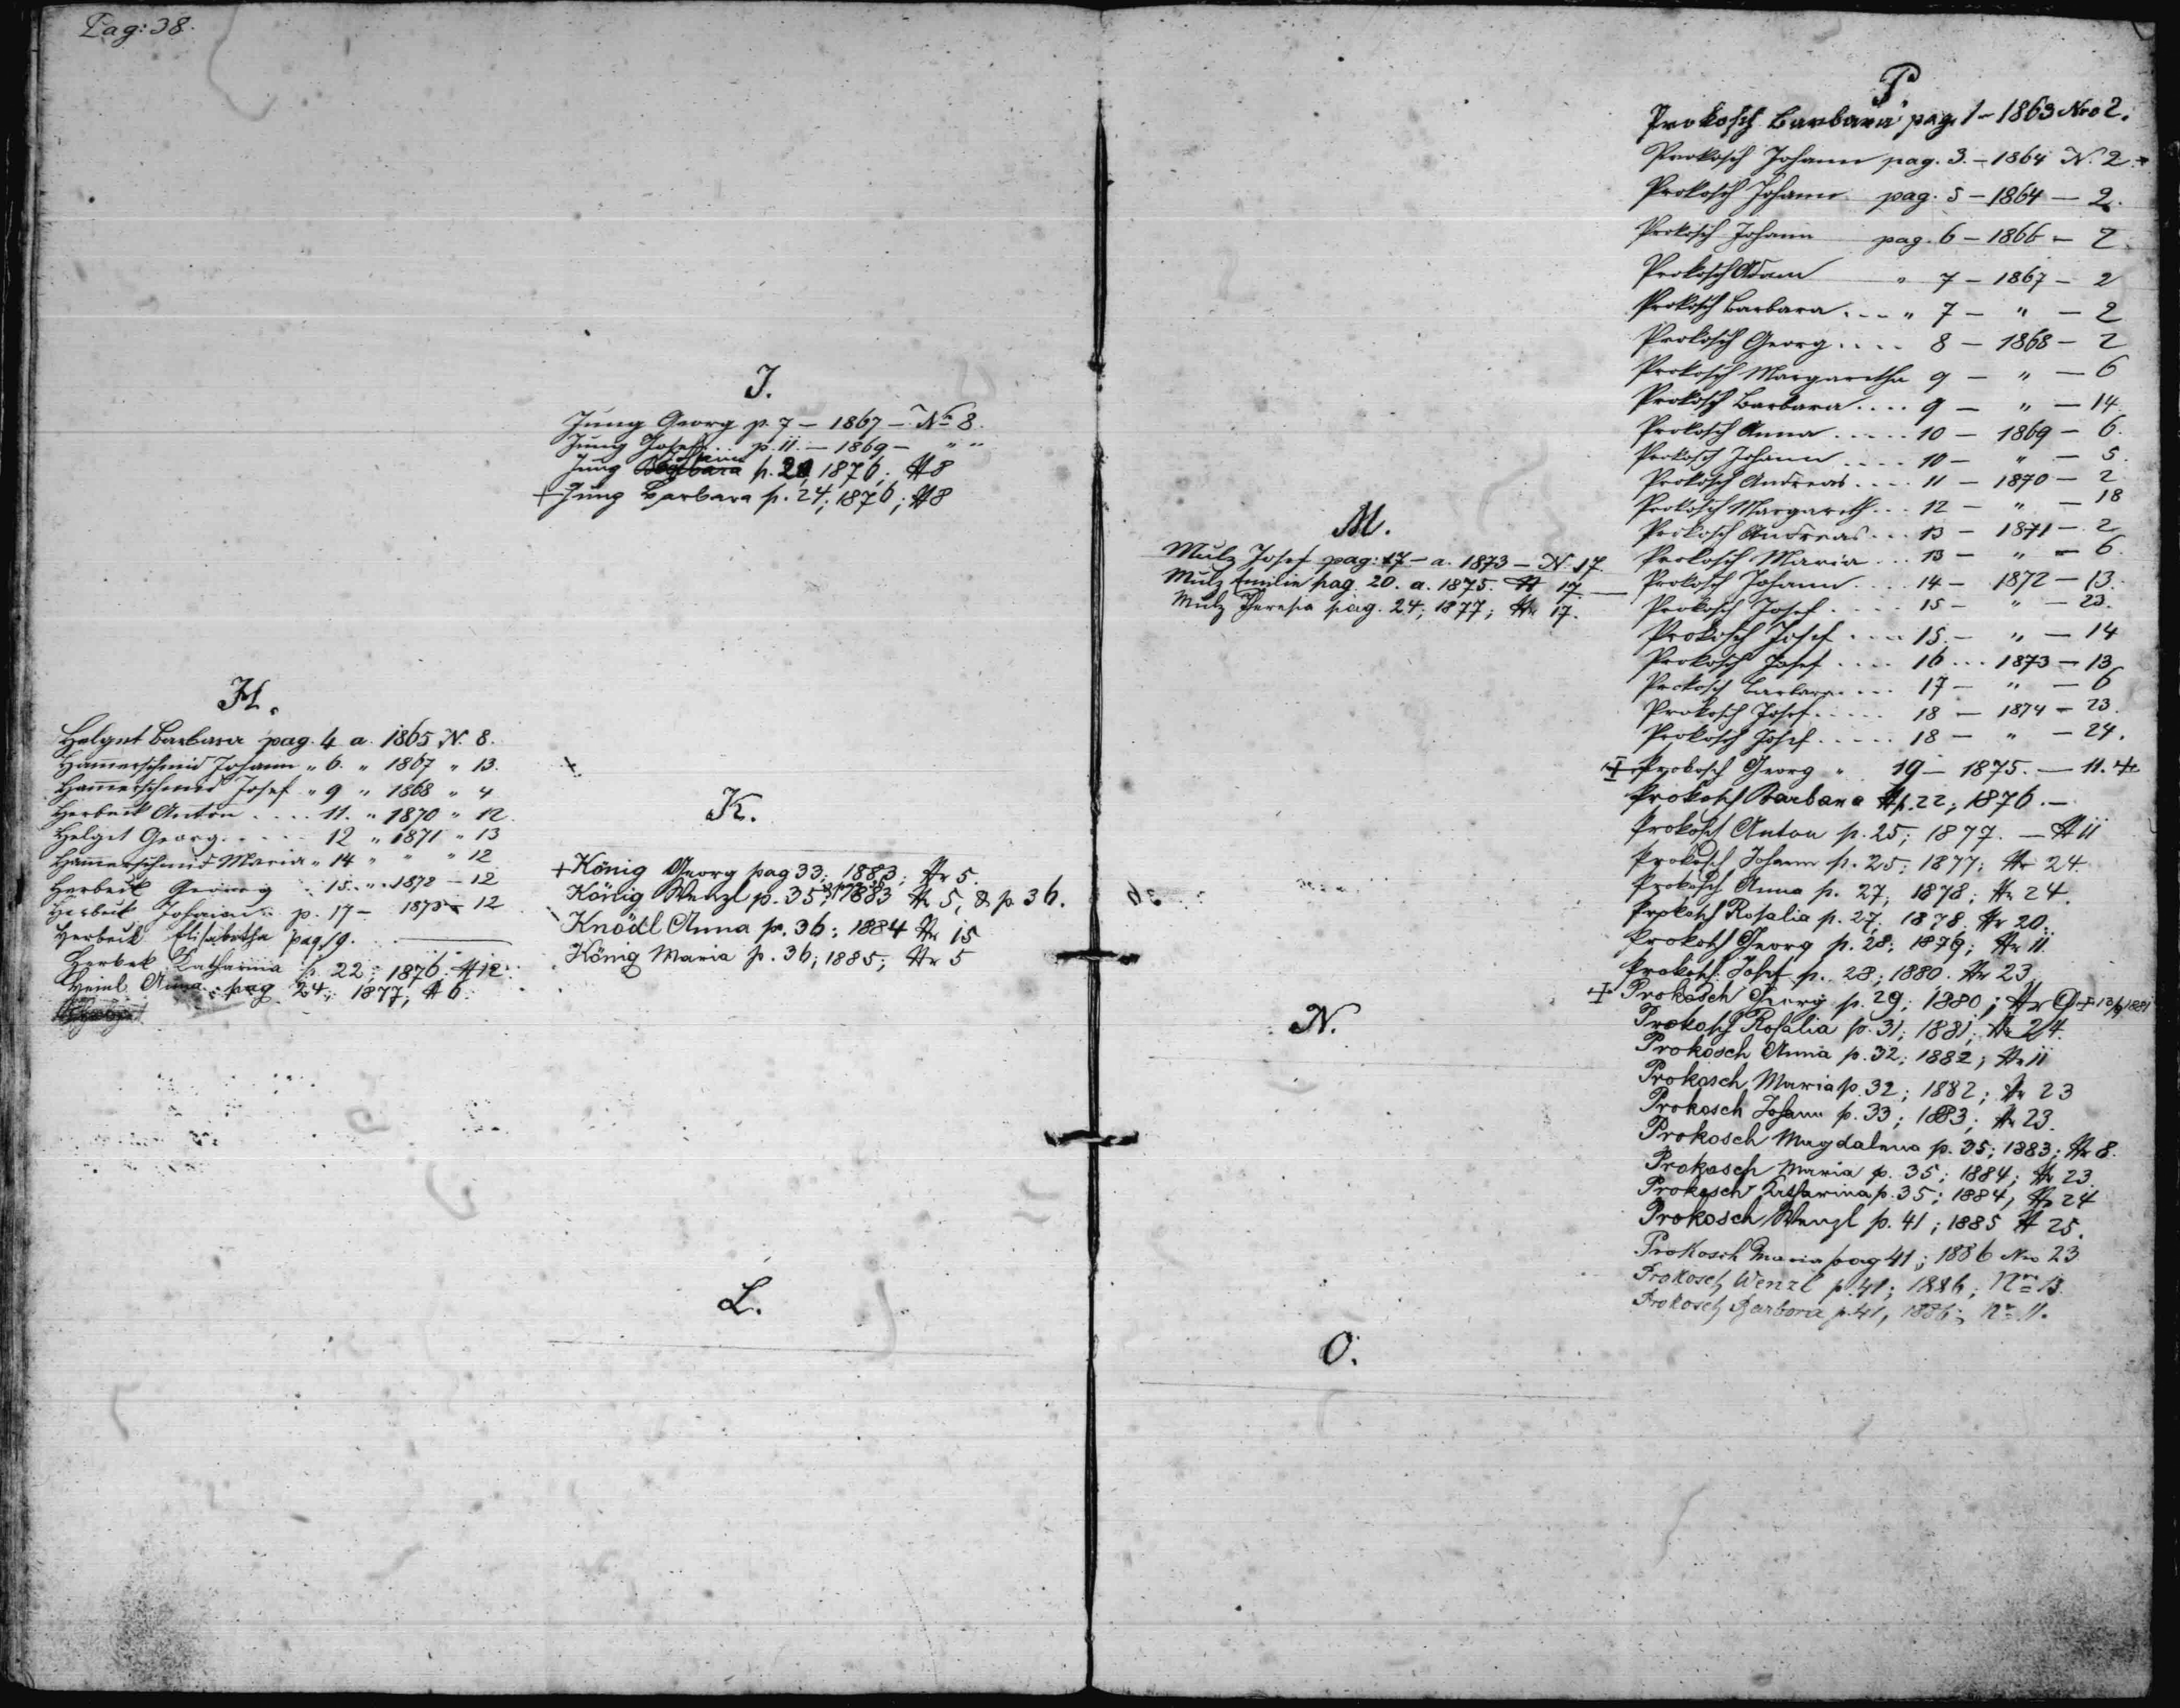 Pag: 38.
H.
Helget Barbara pag. 4 a. 1865 N. 8.
Hammerschmid Johann " 6. " 1867 " 13.
Hammerschmid Josef " 9 " 1868 " 4
Herbeck Anton .... 11. " 1870 " 12.
Helget Georg ..... 12 " 1871 " 13
Hammerschmid Maria " 14 " " " 12
Herbeck Georg 15. " 1872 - 12
Herbeck Johann p. 17 - 1873 - 12
Herbeck Elisabetha pag 19.
Herbek Katharina p. 22; 1876. N 12.
Heinl Anna pag 24; 1877; N 6.
J.
Jung Georg p. 7 - 1867 - No 8.
Jung Josef p. 11. - 1869 - " "
Jung Barbara Johann p. 21, 1876; N 8
+ Jung Barbara p. 24; 1876; N 8
K.
+ König Georg pag 33; 1883; Nr 5.
König Wenzl p. 35; 1883 Nr 5, & p 36.
Knödl Anna p. 36; 1884 Nr 15
König Maria p. 36; 1885; Nr 5
L.
M.
Mulz Josef pag: 17 - a. 1873 - N. 17.
Mulz Emilie pag. 20. a. 1875. N 17.
Mulz Theresia pag. 24; 1877; Nr 17.
N.
O.
P.
Prokosch Barbara pag. 1 - 1863 Nro 2.
Prokosch Johann pag. 3. - 1864 N. 2. +
Prokosch Johann pag. 5 - 1864 - 2.
Prokosch Johann pag. 6 - 1866 - 2.
Prokosch Adam " 7 - 1867 - 2
Prokosch Barbara ... " 7 - " - 2
Prokosch Georg .... 8 - 1868 - 2
Prokosch Margaretha 9 - " - 6
Prokosch Barbara .... 9 - " - 14.
Prokosch Anna ..... 10 - 1869 - 6.
Prokosch Johann .... 10 - " - 5.
Prokosch Andreas .... 11 - 1870 - 2
Prokosch Margareth ... 12 - " - 18
Prokosch Andreas ... 13 - 1871 - 2
Prokosch Maria ... 13 - " - 6.
Prokosch Johann ... 14 - 1872 - 13.
Prokosch Josef .... 15 - " - 23.
Prokosch Josef .... 15. - " - 14
Prokosch Josef .... 16 ... 1873 - 13
Prokosch Barbara .... 17 - " - 6
Prokosch Josef ..... 18 - 1874 - 23.
Prokosch Josef ..... 18 - " - 24.
+ Prokosch Georg " 19 - 1875. - 11. +
Prokosch Barbara p. 22; 1876. -
Prokosch Anton p. 25; 1877. - N 11
Prokosch Johann p. 25; 1877; Nr 24.
Prokosch Anna p. 27; 1878; Nr 24.
Prokosch Rosalia p. 27; 1878. Nr 20.
Prokosch Georg p. 28; 1879; Nr 11
Prokosch Josef p. 28; 1880. Nr 23
+ Prokosch Georg p. 29; 1880; Nr
Prokosch Rosalia p. 31; 1881; Nr 24.
Prokosch Anna p. 32; 1882; Nr 11
Prokosch Maria p. 32; 1882; Nr 23
Prokosch Johann p. 33; 1883; Nr 23.
Prokosch Magdalena p. 35; 1883; Nr 8.
Prokosch Maria p. 35; 1884; Nr 23.
Prokosch Katharina p. 35; 1884, Nr 24
Prokosch Wenzl p. 41; 1885 N 25.
Prokosch Maria pag 41; 1886 Nro 23
Prokosch Wenzl p. 41; 1886; Nr 13.
Prokosch Barbora p. 41, 1886; Nr 11.